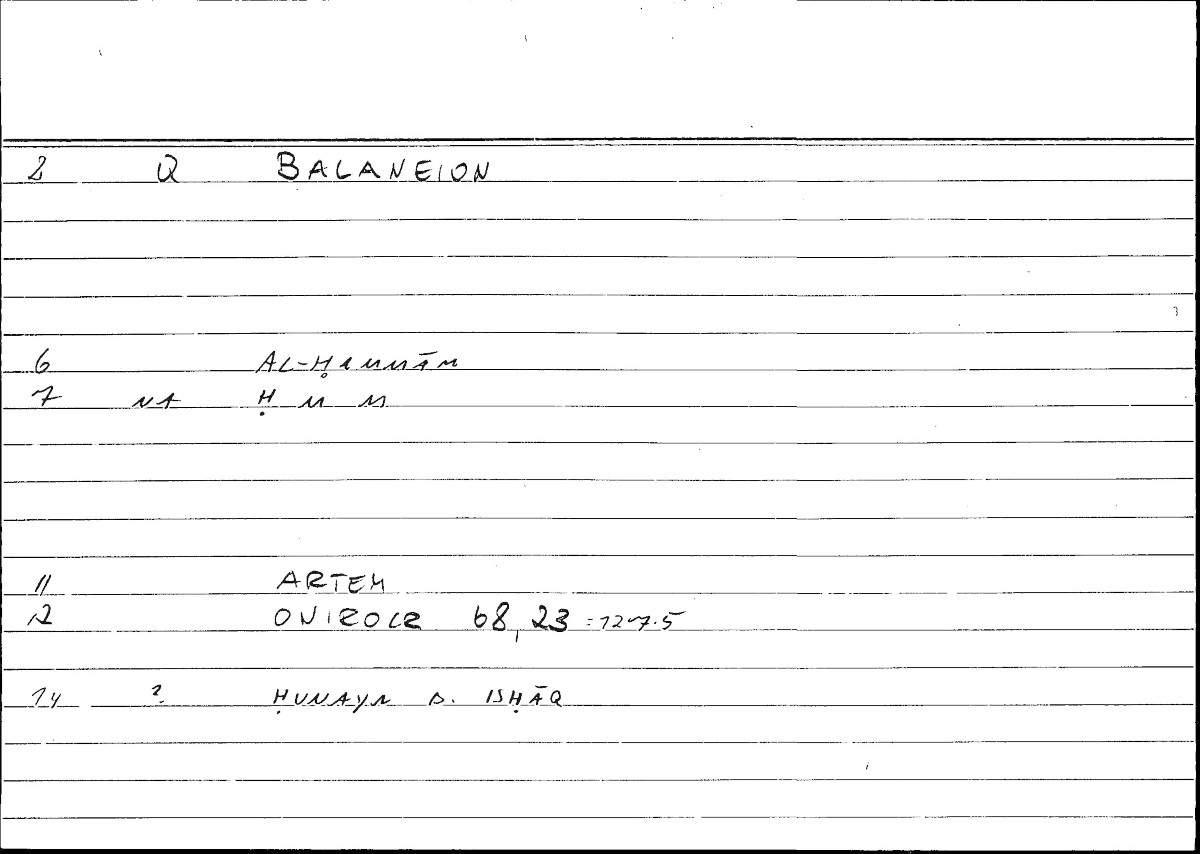 2 Q BALANEION
6 AL-ḤAMMĀM
7 NA Ḥ M M
11 ARTEM
12 ONIROCR 68,23 =127.5
14 ? ḤUNAYN B. ISḤĀQ